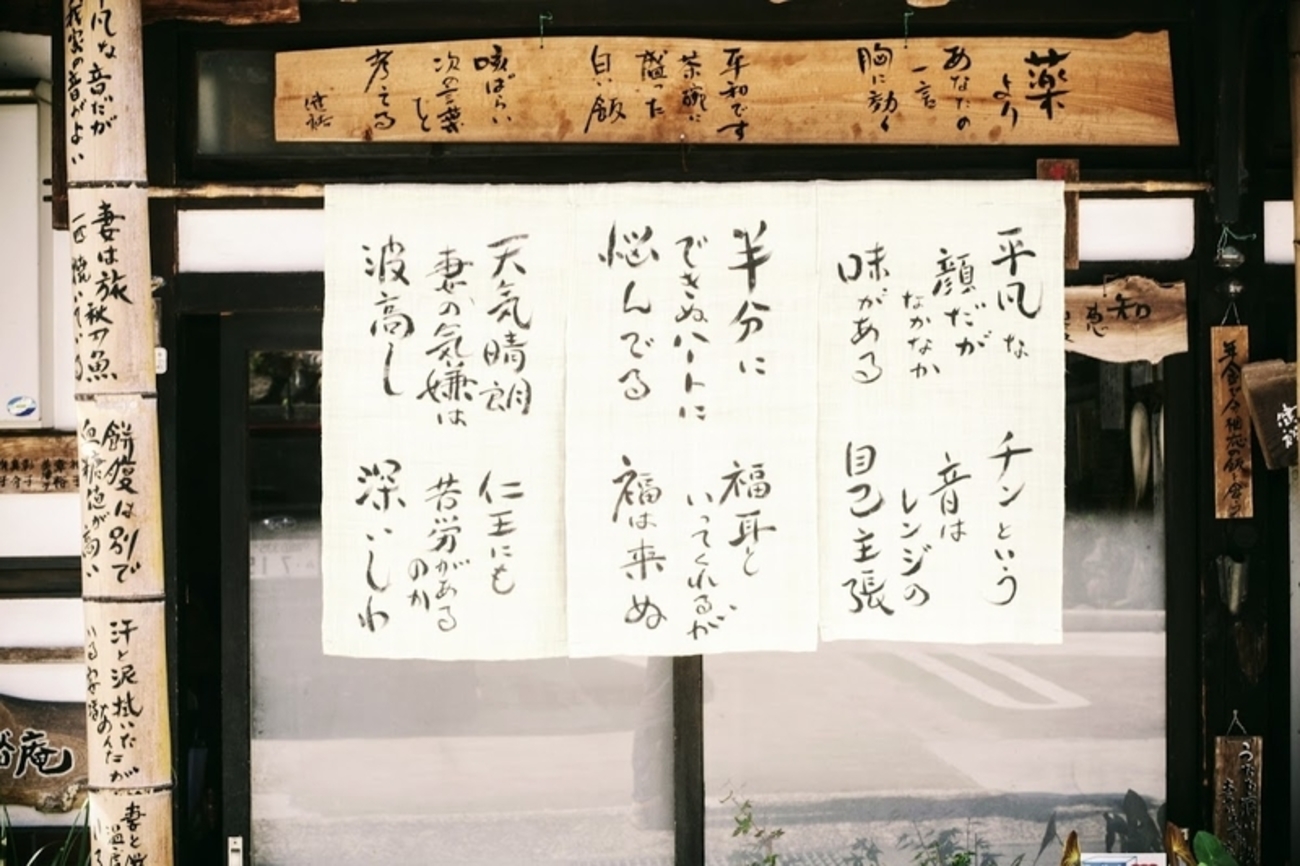 薬
より
あなたの
一言
胸に効く
平和です
茶碗に
盛った
白い飯
咳ばらい
次の言葉
ひと
考える
健裕
平凡な
顔だが
なかなか
味がある
チンという
音は
レンジの
自己主張
半分に
できぬハートに
悩んでる
福耳と
いってくれるが
福は来ぬ
天気晴朗
妻の気嫌は
波高し
仁王にも
苦労がある
のか
深いしわ
平凡な音だが
我家の音がよい
妻は旅秋刀魚
一匹焼いている
餅腹は別で
血糖値が高い
汗と泥拭いた
妻と
知
庵